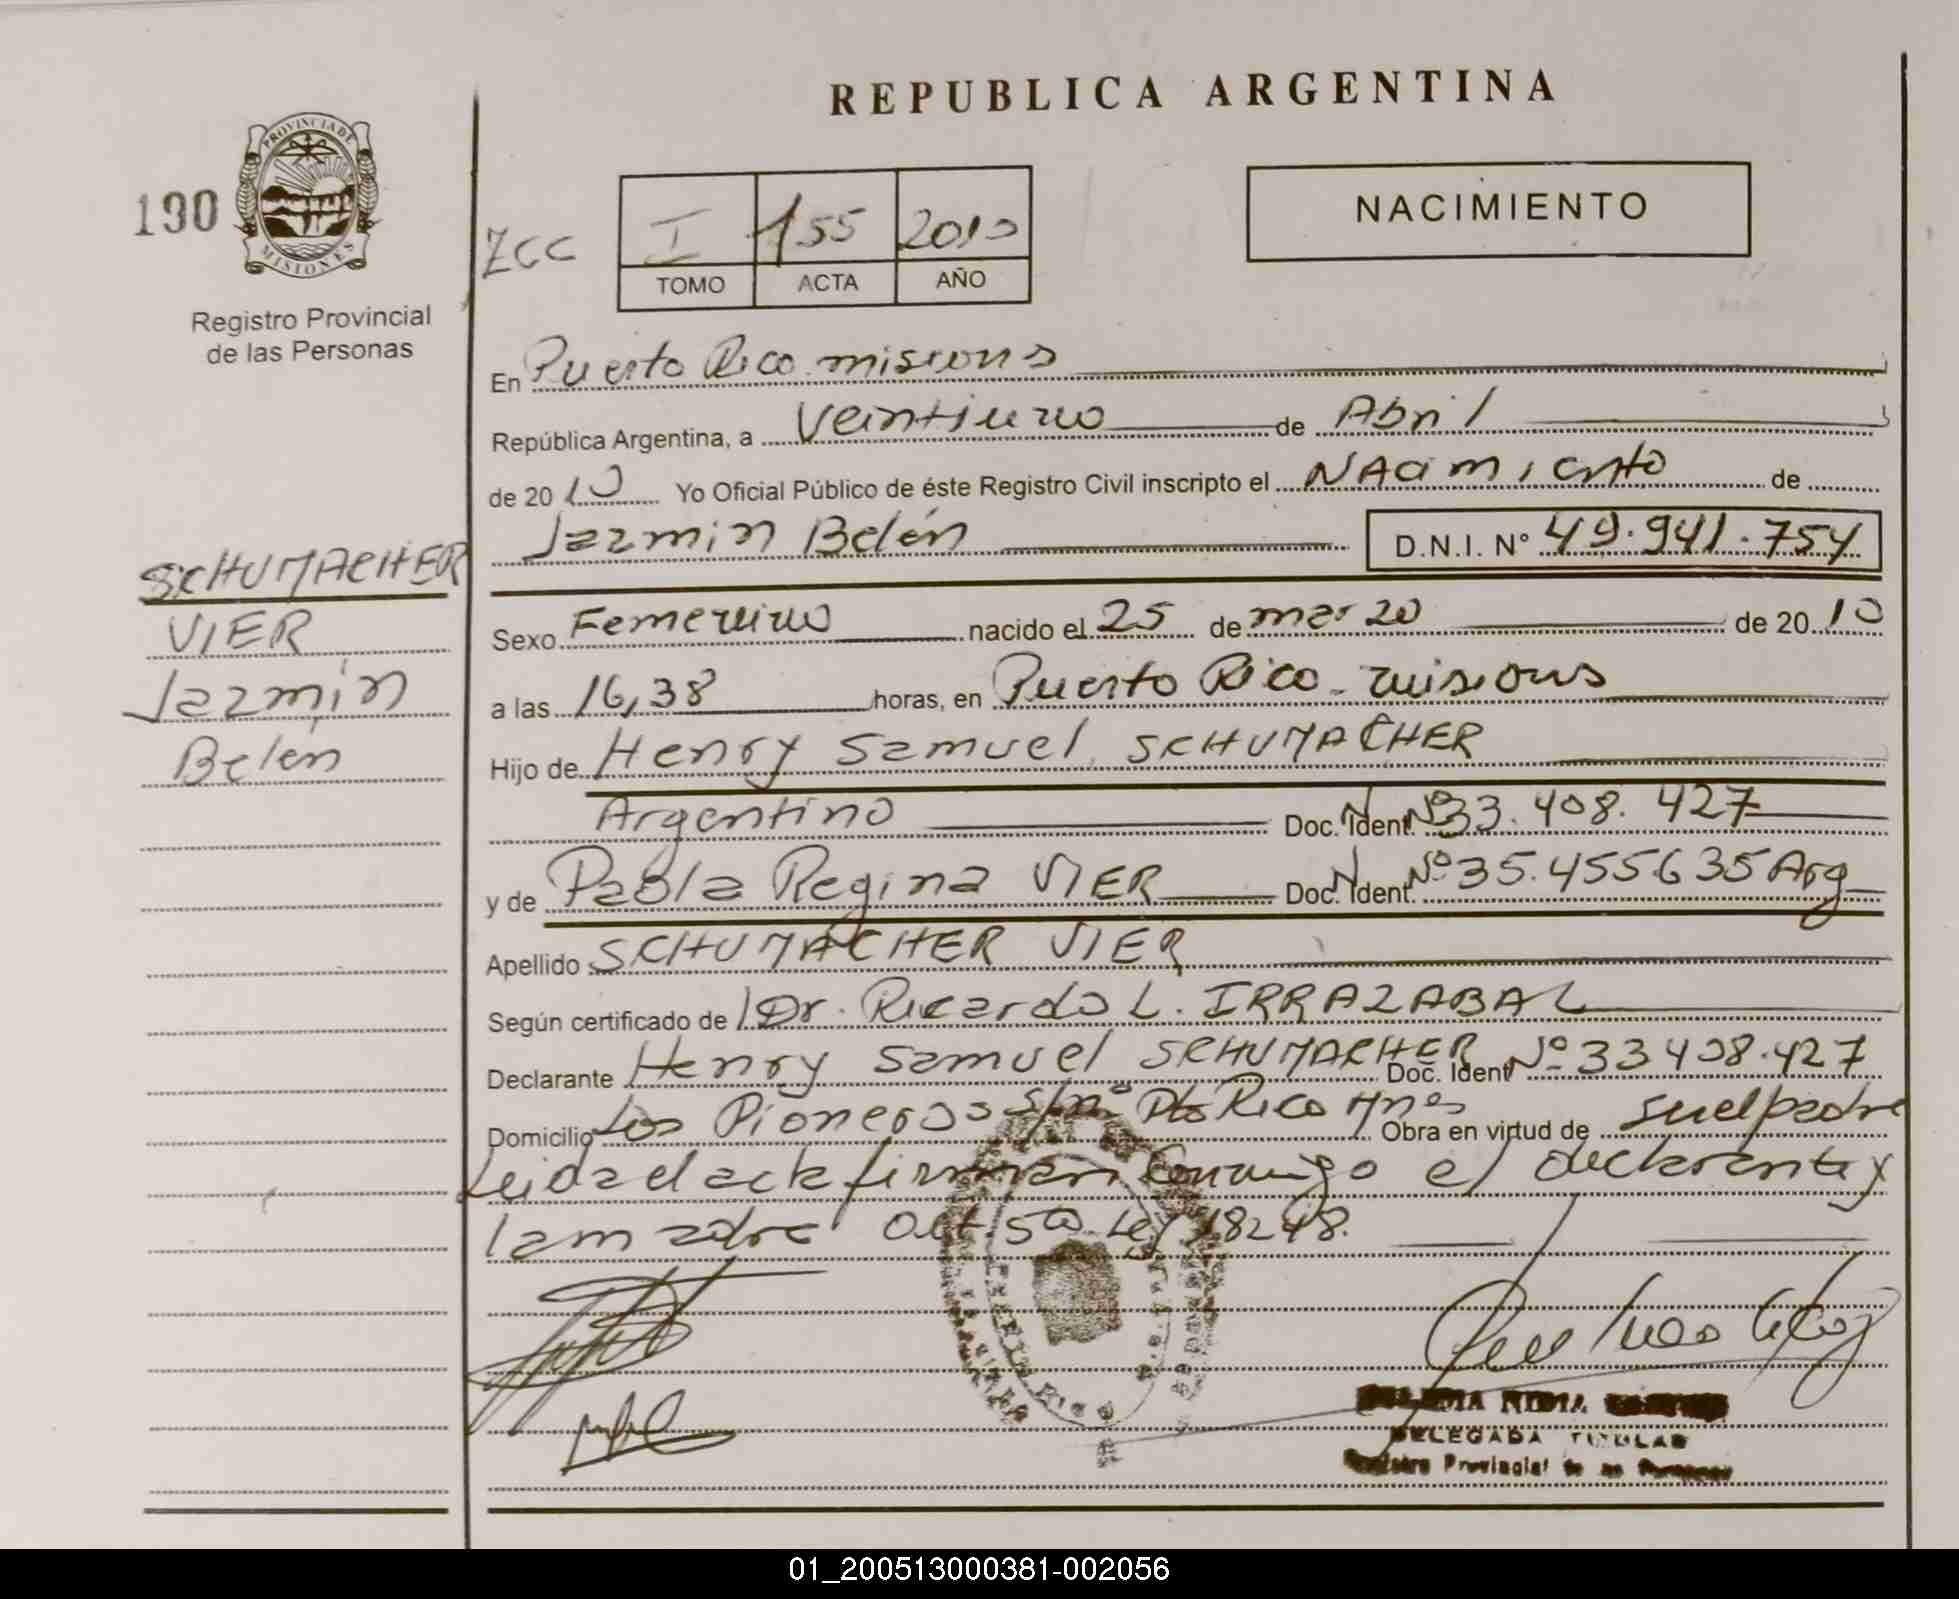 REPUBLICA ARGENTINA
190
PROVINCIA DE
MISIONES
Registro Provincial
de las Personas
ZCC
I 155 2010
TOMO ACTA AÑO
NACIMIENTO
En Puerto Rico misiones
República Argentina, a Veintiuno de Abril
de 2010 Yo Oficial Público de éste Registro Civil inscripto el NAcimiento de
Jazmin Belén D.N.I. N° 49.941.754
SCHUMACHER
VIER
Jazmin
Belén
Sexo Femenino nacido el 25 de marzo de 2010
a las 16,38 horas, en Puerto Rico - misiones
Hijo de Henry Samuel SCHUMACHER
Argentino Doc. Ident. Nº 33.408.427
y de Paola Regina VIER Doc. Ident. Nº 35.455635 Arg
Apellido SCHUMACHER VIER
Según certificado de Dr. Ricardo L. IRRAZABAL
Declarante Henry Samuel SCHUMACHER Doc. Ident Nº 33408.427
Domicilio Los Pioneros s/nº Pto Rico Mnes Obra en virtud de su el padre
Leida el acta firman conmigo el declarante y
la madre art. 5to Ley 18248.
NIDIA
DELEGADA TITULAR
Registro Provincial de las Personas
01_200513000381-002056